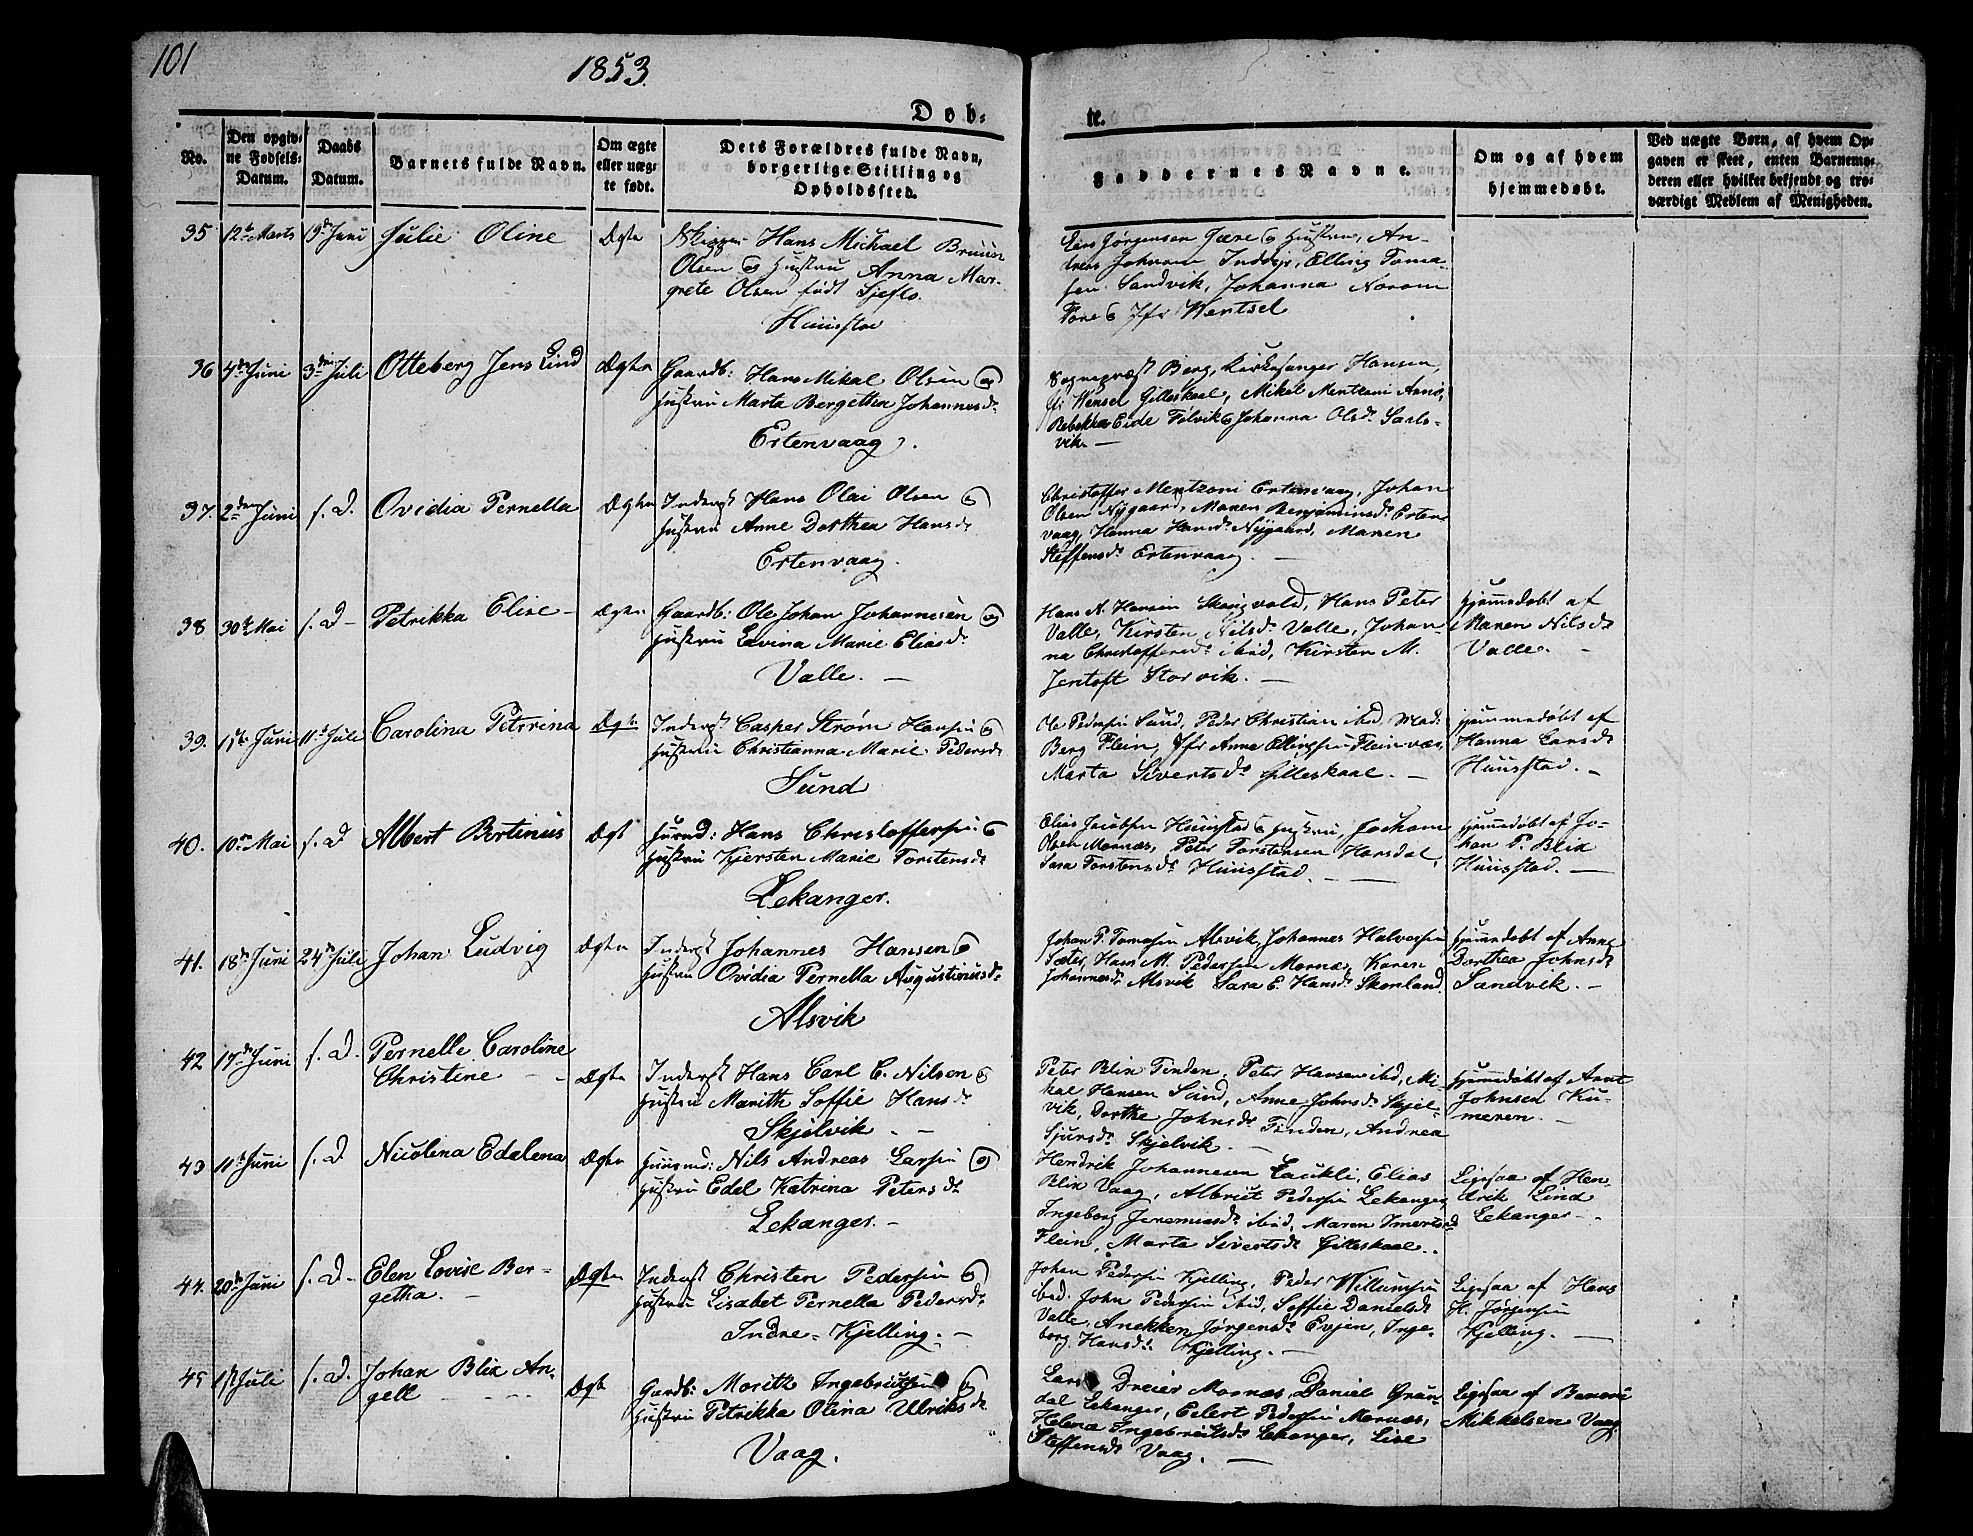 101
1853.
Døb-
te.
No.
Den opgiv-
ne Fødsels-
Datum.
Daabs
Datum.
Barnets fulde Navn.
Om ægte
eller uæg-
te født.
Dets Forældres fulde Navn,
borgerlige Stilling og
Opholdssted.
Faddernes Navne.
Om og af hvem
hjemmedøbt.
Ved uægte Børn, af hvem Op-
gaven er skeet, enten Barnemo-
deren eller hvilket bekjendt og tro-
værdigt Medlem af Menigheden.
35 12te Marts 19de Juni Julie Oline Ægte
Skipper Hans Michael Bruun
Olsen og Hustru Anna Mar-
grete Olsen født
Huustad
Jørgensen og Hustru, An-
dreas Johnsen Elling Toma-
sen Sandvik, Johanna
Tone Jfr Wentsel
36 4de Juni 3die Juli Otteberg Jens Lind Ægte
Gaardb: Hans Mikal Olsen og
Hustru Marta Bergetha Johannesdr
Ertenvaag.
Sognepræst Berg, Kirkesanger Hansen,
Wensel Gilleskaal, Mikal Mentzoni Arnø,
Rebekka Eide Johanna Olsdr Sarls-
vik. —
37. 2den Juni s. D. Ovidia Pernella Ægte
Inderst Hans Olai Olsen og
Hustru Anne Dorthea Hansdr
Ertenvaag.
Christoffer Mentzoni Ertenvaag, Johan
Olsen Nygaard, Maren Benjaminsdr Erten-
vaag, Hanna Hansdr Nygaard, Maren
Steffensdr Ertenvaag. —
38 30te Mai s. D. Petrikka Elise Ægte
Gaardb: Ole Johan Johannesen og
Hustru Lavina Marie Eliasdr
Valle. —
Hans N. Hansen Skaugvold, Hans Peter
Valle, Kirsten Nilsdr Valle, Johan-
na Christoffersdr ibid, Kirsten M.
Jentoft Storvik. —
hjemmedøbt af
Maren Nilsdr
Valle. —
39. 1ste Juni 11te Juli Carolina Petrina Ægte
Inderst Casper Strøm Hansen og
Hustru Christianna Marie Pedersdr
Sund
Ole Pedersen Sund, Peder Christian ibid, Mad:
Berg Flein, Jfr Anne Ellingsen Fleinvær,
Marta Sivertsdr Gilleskaal. —
hjemmedøbt af
Hanna Larsdr
Huusstad. —
40. 10de Mai s. D Albert Bertinus Ægt
Huusmd: Hans Christoffersen og
Hustru Kjersten Marie Torstensdr
Lekanger.
Elias Jacobsen Huusstad og Hustru, Jocham
Olsen Mornæs, Peter Torstensen Horsdal,
Sara Torstensdr Huusstad. —
hjemmedøbt af Jo-
han P. Blix
Huusstad. —
41. 18de Juni 24de Juli Johan Ludvig Ægte
Inderst Johannes Hansen og
Hustru Ovidia Pernella Augustinusdr
Alsvik
Johan P. Tomasen Alsvik, Johannes Halvorsen
Sæter, Hans M. Pedersen Mornæs, Karen
Johannesdr Alsvik Sara E. Hansdr Skonland.
hjemmedøbt af Anne
Dorthea Johnsdr
Sandvik. —
42 17de Juni s. D. Pernelle Caroline
Christine — Ægte
Inderst Hans Carl C. Nilson og
Hustru Marith Soffie Hansdr
Skjelvik. —
Peter Blix Tinden, Peter Hansen ibid, Mi-
kal Hansen Sund, Anne Johnsdr Skjel-
vik, Dorthe Johnsdr Tinden, Andrea
Sjursdr Skjelvik. —
hjemmedøbt af Arnt
Johnsen Ku-
meren. —
43 11te Juni s. D Nicolina Edelena Ægte
Huusmd: Nils Andreas Larsen og
Hustru Edel Katrina Petersdr
Lekanger. —
Hendrik Johannesen Laukli, Elias
Blix Vaag, Albrigt Pedersen Lekanger,
Ingeborg Jeremiasdr ibid, Maren
Flein, Marta Sivertsdr Gilleskaal.
Ligesaa af Hen-
drik Lind
Lekanger. —
44. 20de Juni s. D. Elen Lovise Ber-
getha. — Ægte
Inderst Christen Pedersen og
Hustru Lisabet Pernella Pedersdr
Indre-Kjelling. —
Johan Pedersen Kjelling, Peder Willumsen
ibid. John Pedersen ibid, Soffie Danielsdr
Valle, Anekken Jørgensdr Evjen, Inge-
borg Hansdr Kjelling. —
Ligesaa af Hans
H. Jørgensen
Kjelling. —
45 1ste Juli s. D. Johan Blix An-
gell Ægte
Gardb: Morits Ingebrigtsen og
Hustru Petrikka Olina Ulriksdr
Vaag.
Lars Dreier Mornæs, Daniel Grøn-
dal Lekanger, Eilert Pedersen Mornæs,
Helena Ingebrigtsdr Lekanger, Lise
Steffensdr Vaag. —
Ligesaa af
Mikkelsen Vaag.